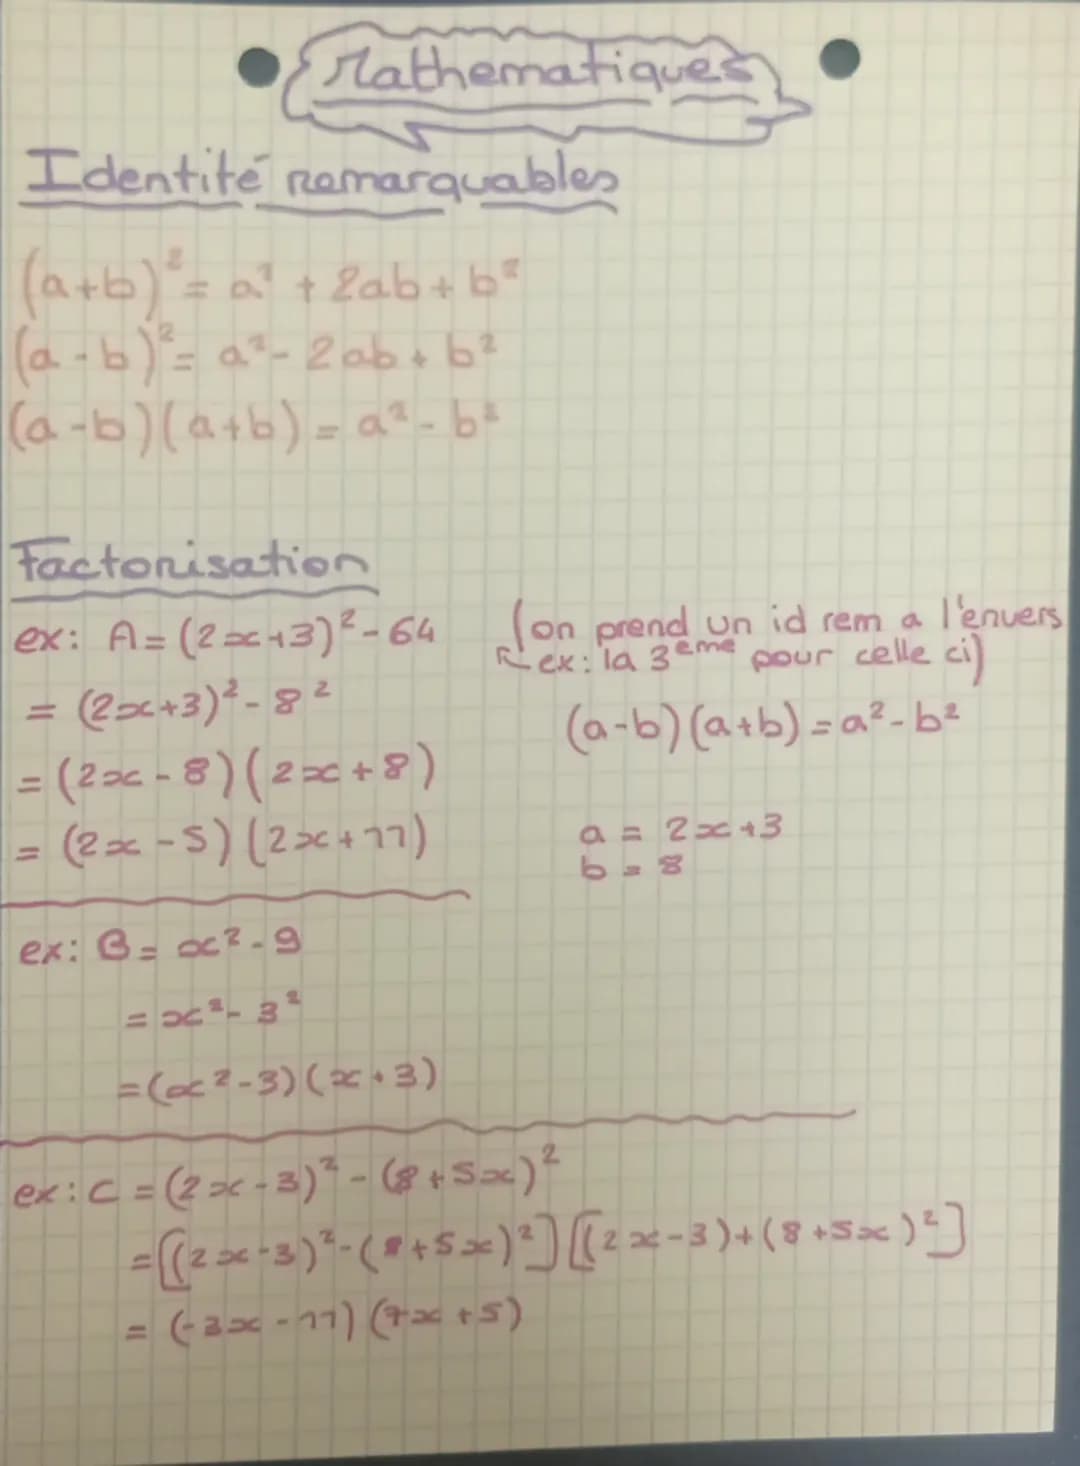 Mathematiques
Identité remarquables
(a+b)² = a² + 2ab + b²
(a - b)² = a² - 2ab + b²
(a - b)(a+b) = a² - b²
Factorisation
ex: A = (2x+3)² - 64
(on prend un id rem a l'envers
ex: la 3ème pour celle ci)
= (2x+3)² - 8²
(a-b)(a+b) = a² - b²
= (2x - 8)(2x + 8)
= (2x - 5)(2x + 11)
a = 2x+3
b = 8
ex: B = x² - 9
= x² - 3²
= (x² - 3)(x + 3)
ex: C = (2x - 3)² - (8 + 5x)²
= [(2x - 3)² - (8 + 5x)²] [(2x - 3) + (8 + 5x)²]
= (-3x - 11)(7x + 5)